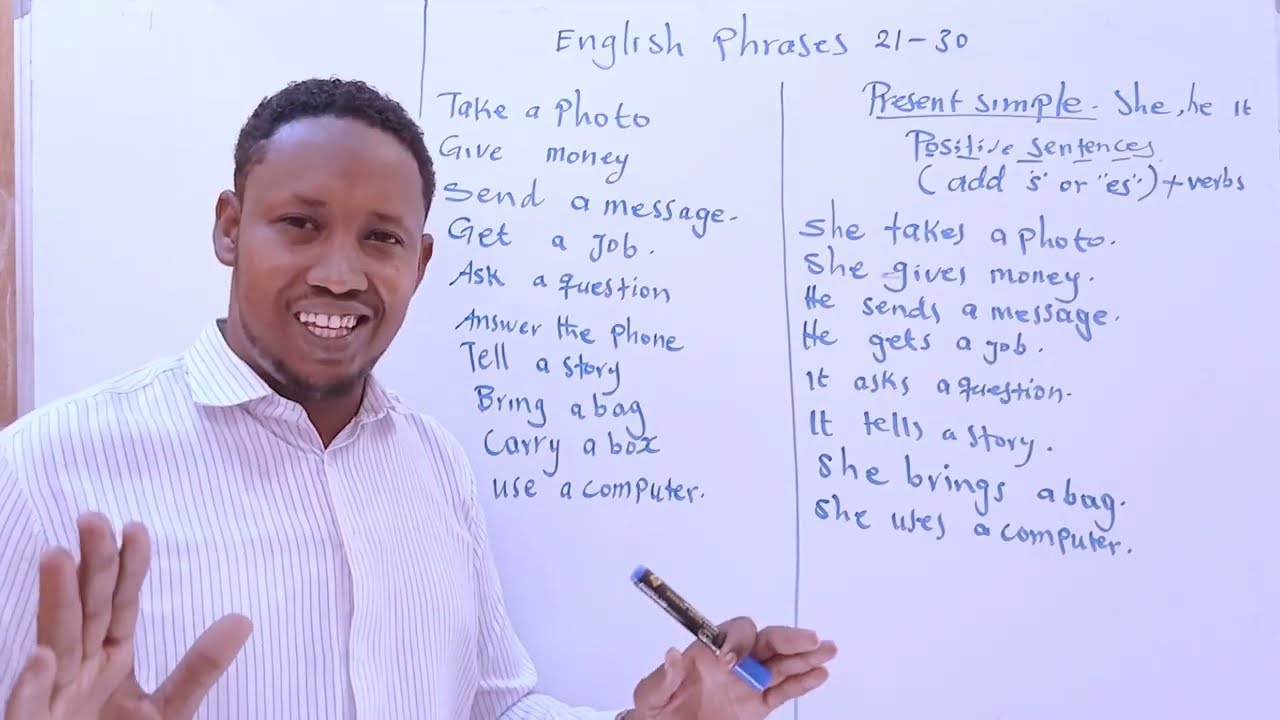 English Phrases 21-30
Take a photo
Give money
Send a message.
Get a job.
Ask a question
Answer the phone
Tell a story
Bring a bag
Carry a box
use a computer.
Present simple. She, he it
Positive sentences
(add 's' or "es") + verbs
She takes a photo.
She gives money.
He sends a message.
He gets a job.
It asks a question.
It tells a story.
She brings a bag.
She uses a computer.